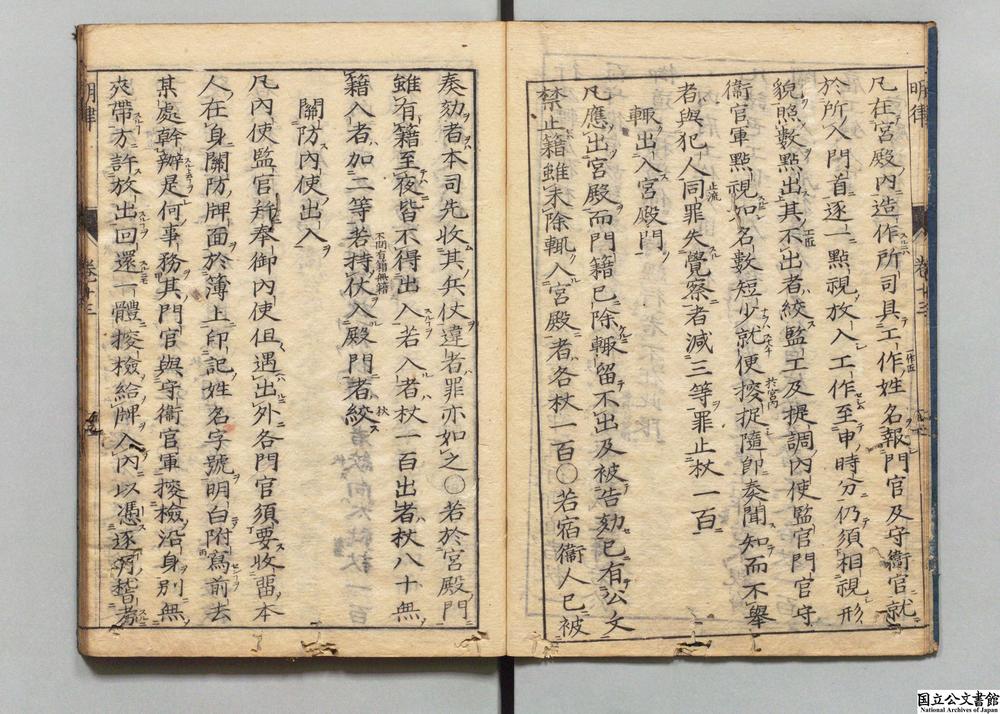 明律
卷十三
凡在宮殿內造作所司具工作姓名報門官及守衞官就
於所入門首逐一點視放入工作至申時分仍須相視形
貌照數點出其不出者絞監工及提調內使監官門官守
衞官軍點視如名數短少就便搜捉隨即奏聞知而不舉
者與犯人同罪失覺察者減三等罪止杖一百
輙出入宮殿門
凡應出宮殿而門籍已除輙留不出及被告劾已有公文
禁止籍雖未除輙入宮殿者各杖一百○若宿衞人已被
奏劾者本司先收其兵仗違者罪亦如之○若於宮殿門
雖有籍至夜皆不得出入若入者杖一百出者杖八十無
籍入者加二等若持仗入殿門者絞
關防內使出入
凡內使監官幷奉御內使但遇出外各門官須要收畱本
人在身關防牌面於簿上印記姓名字號明白附寫前去
某處幹辦是何事務其門官與守衞官軍搜檢沿身別無
夾帶方許放出回還一體搜檢給牌入內以憑逐月稽考
明律
卷十三
国立公文書館
National Archives of Japan